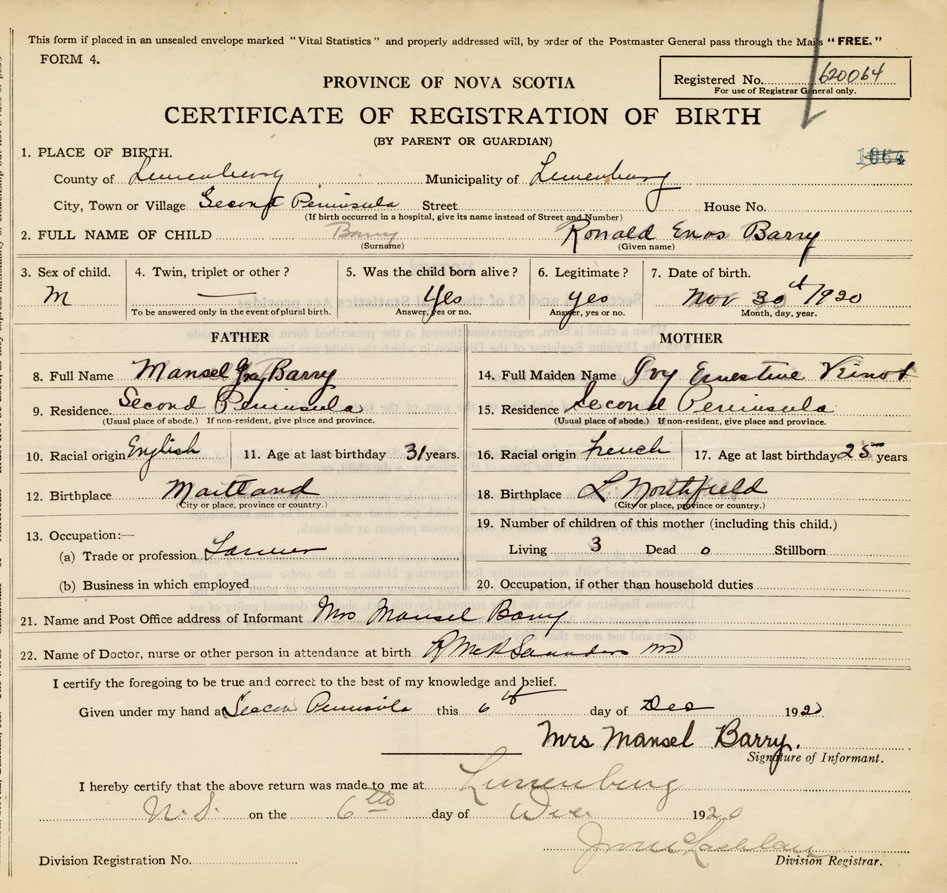 This form if placed in an unsealed envelope marked "Vital Statistics" and properly addressed will, by order of the Postmaster General pass through the Mails "FREE."
FORM 4.
Registered No. 620064
For use of Registrar General only.
PROVINCE OF NOVA SCOTIA
CERTIFICATE OF REGISTRATION OF BIRTH
(BY PARENT OR GUARDIAN)
1064
1. PLACE OF BIRTH.
County of Lunenburg Municipality of Lunenburg
City, Town or Village Second Peninsula Street House No.
(If birth occurred in a hospital, give its name instead of Street and Number)
2. FULL NAME OF CHILD Barry Ronald Enos Barry
(Surname) (Given name)
3. Sex of child. 4. Twin, triplet or other? 5. Was the child born alive? 6. Legitimate? 7. Date of birth.
M — Yes yes Nov 30th/1920
To be answered only in the event of plural birth. Answer, yes or no. Answer, yes or no. Month, day, year.
FATHER MOTHER
8. Full Name Mansel Barry 14. Full Maiden Name Ivy Ernestine Veinot
9. Residence. Second Peninsula 15. Residence Second Peninsula
(Usual place of abode.) If non-resident, give place and province. (Usual place of abode.) If non-resident, give place and province.
10. Racial origin English 11. Age at last birthday 31 years. 16. Racial origin French 17. Age at last birthday 25 years
12. Birthplace Maitland 18. Birthplace L Northfield
(City or place, province or country.) (City or place, province or country.)
13. Occupation:— 19. Number of children of this mother (including this child.)
(a) Trade or profession Farmer Living 3 Dead 0 Stillborn
(b) Business in which employed 20. Occupation, if other than household duties
21. Name and Post Office address of Informant Mrs Mansel Barry
22. Name of Doctor, nurse or other person in attendance at birth Saunders MD
I certify the foregoing to be true and correct to the best of my knowledge and belief.
Given under my hand at Second Peninsula this 6th day of Dec 1920
Mrs Mansel Barry.
Signature of Informant.
I hereby certify that the above return was made to me at Lunenburg
N.S. on the 6th day of Dec 1920
Division Registration No. Division Registrar.